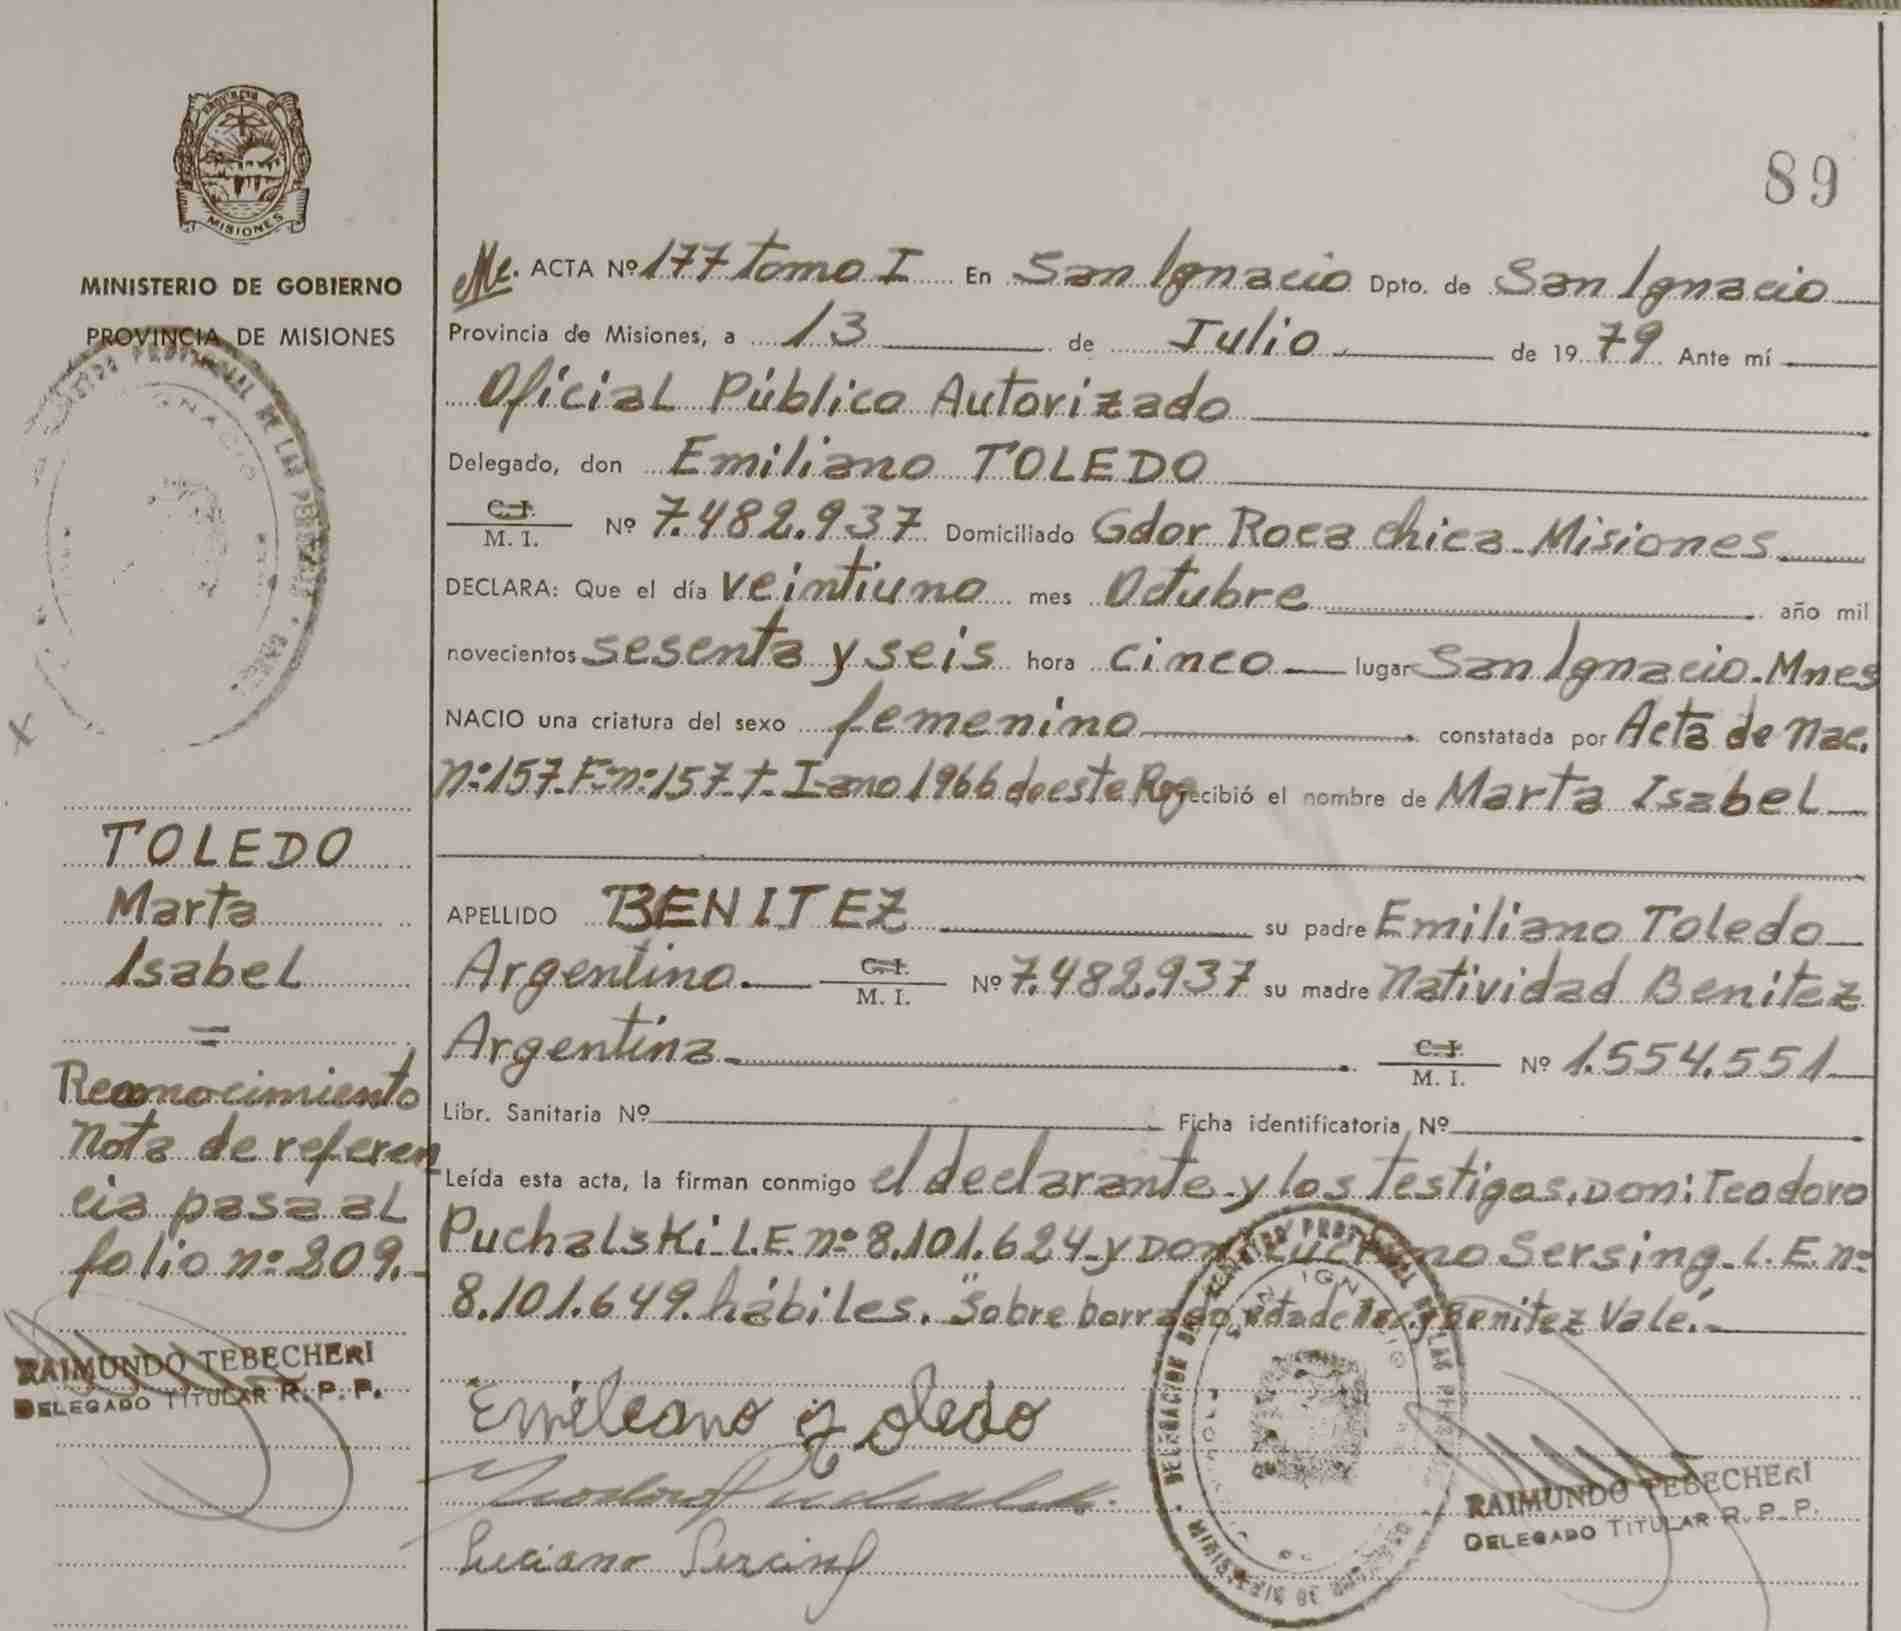 89
MISIONES
MINISTERIO DE GOBIERNO
PROVINCIA DE MISIONES
TOLEDO
Marta
Isabel
=
Reconocimiento
Nota de referen
cia pasa al
folio nº 209.-
RAIMUNDO TEBECHERI
DELEGADO TITULAR R. P. P.
ACTA Nº 177 tomo I En San Ignacio Dpto. de San Ignacio
Provincia de Misiones, a 13 de Julio de 1979 Ante mí
Oficial Público Autorizado
Delegado, don Emiliano TOLEDO
C.I. / M. I. Nº 7.482.937 Domiciliado Gdor Roca chica - Misiones
DECLARA: Que el día veintiuno mes Octubre año mil
novecientos sesenta y seis hora cinco lugar San Ignacio. Mnes
NACIO una criatura del sexo femenino constatada por Acta de Nac.
nº 157 - Fº nº 157 - t - I - ano 1966 de este Reg recibió el nombre de Marta Isabel
APELLIDO BENITEZ su padre Emiliano Toledo
Argentino. C.I. / M. I. Nº 7.482.937 su madre Natividad Benitez
Argentina C.I. / M. I. Nº 1.554.551
Libr. Sanitaria Nº Ficha identificatoria Nº
Leída esta acta, la firman conmigo el declarante y los testigos, Don: Teodoro
Puchalski - L.E. nº 8.101.624 y Don Luciano Sersing - L.E. nº
8.101.649. hábiles. Sobre borrado y Benitez Vale.-
Emileano Toledo
Luciano Sersing
RAIMUNDO TEBECHERI
DELEGADO TITULAR R. P. P.